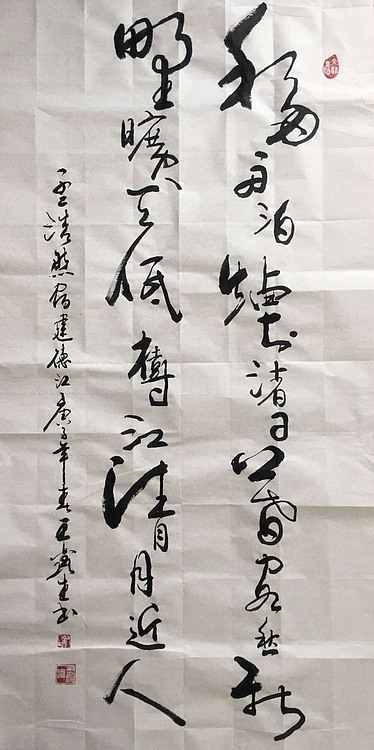 移舟泊煙渚日暮客愁新
野曠天低樹江清月近人
孟浩然宿建德江庚子年春王生书